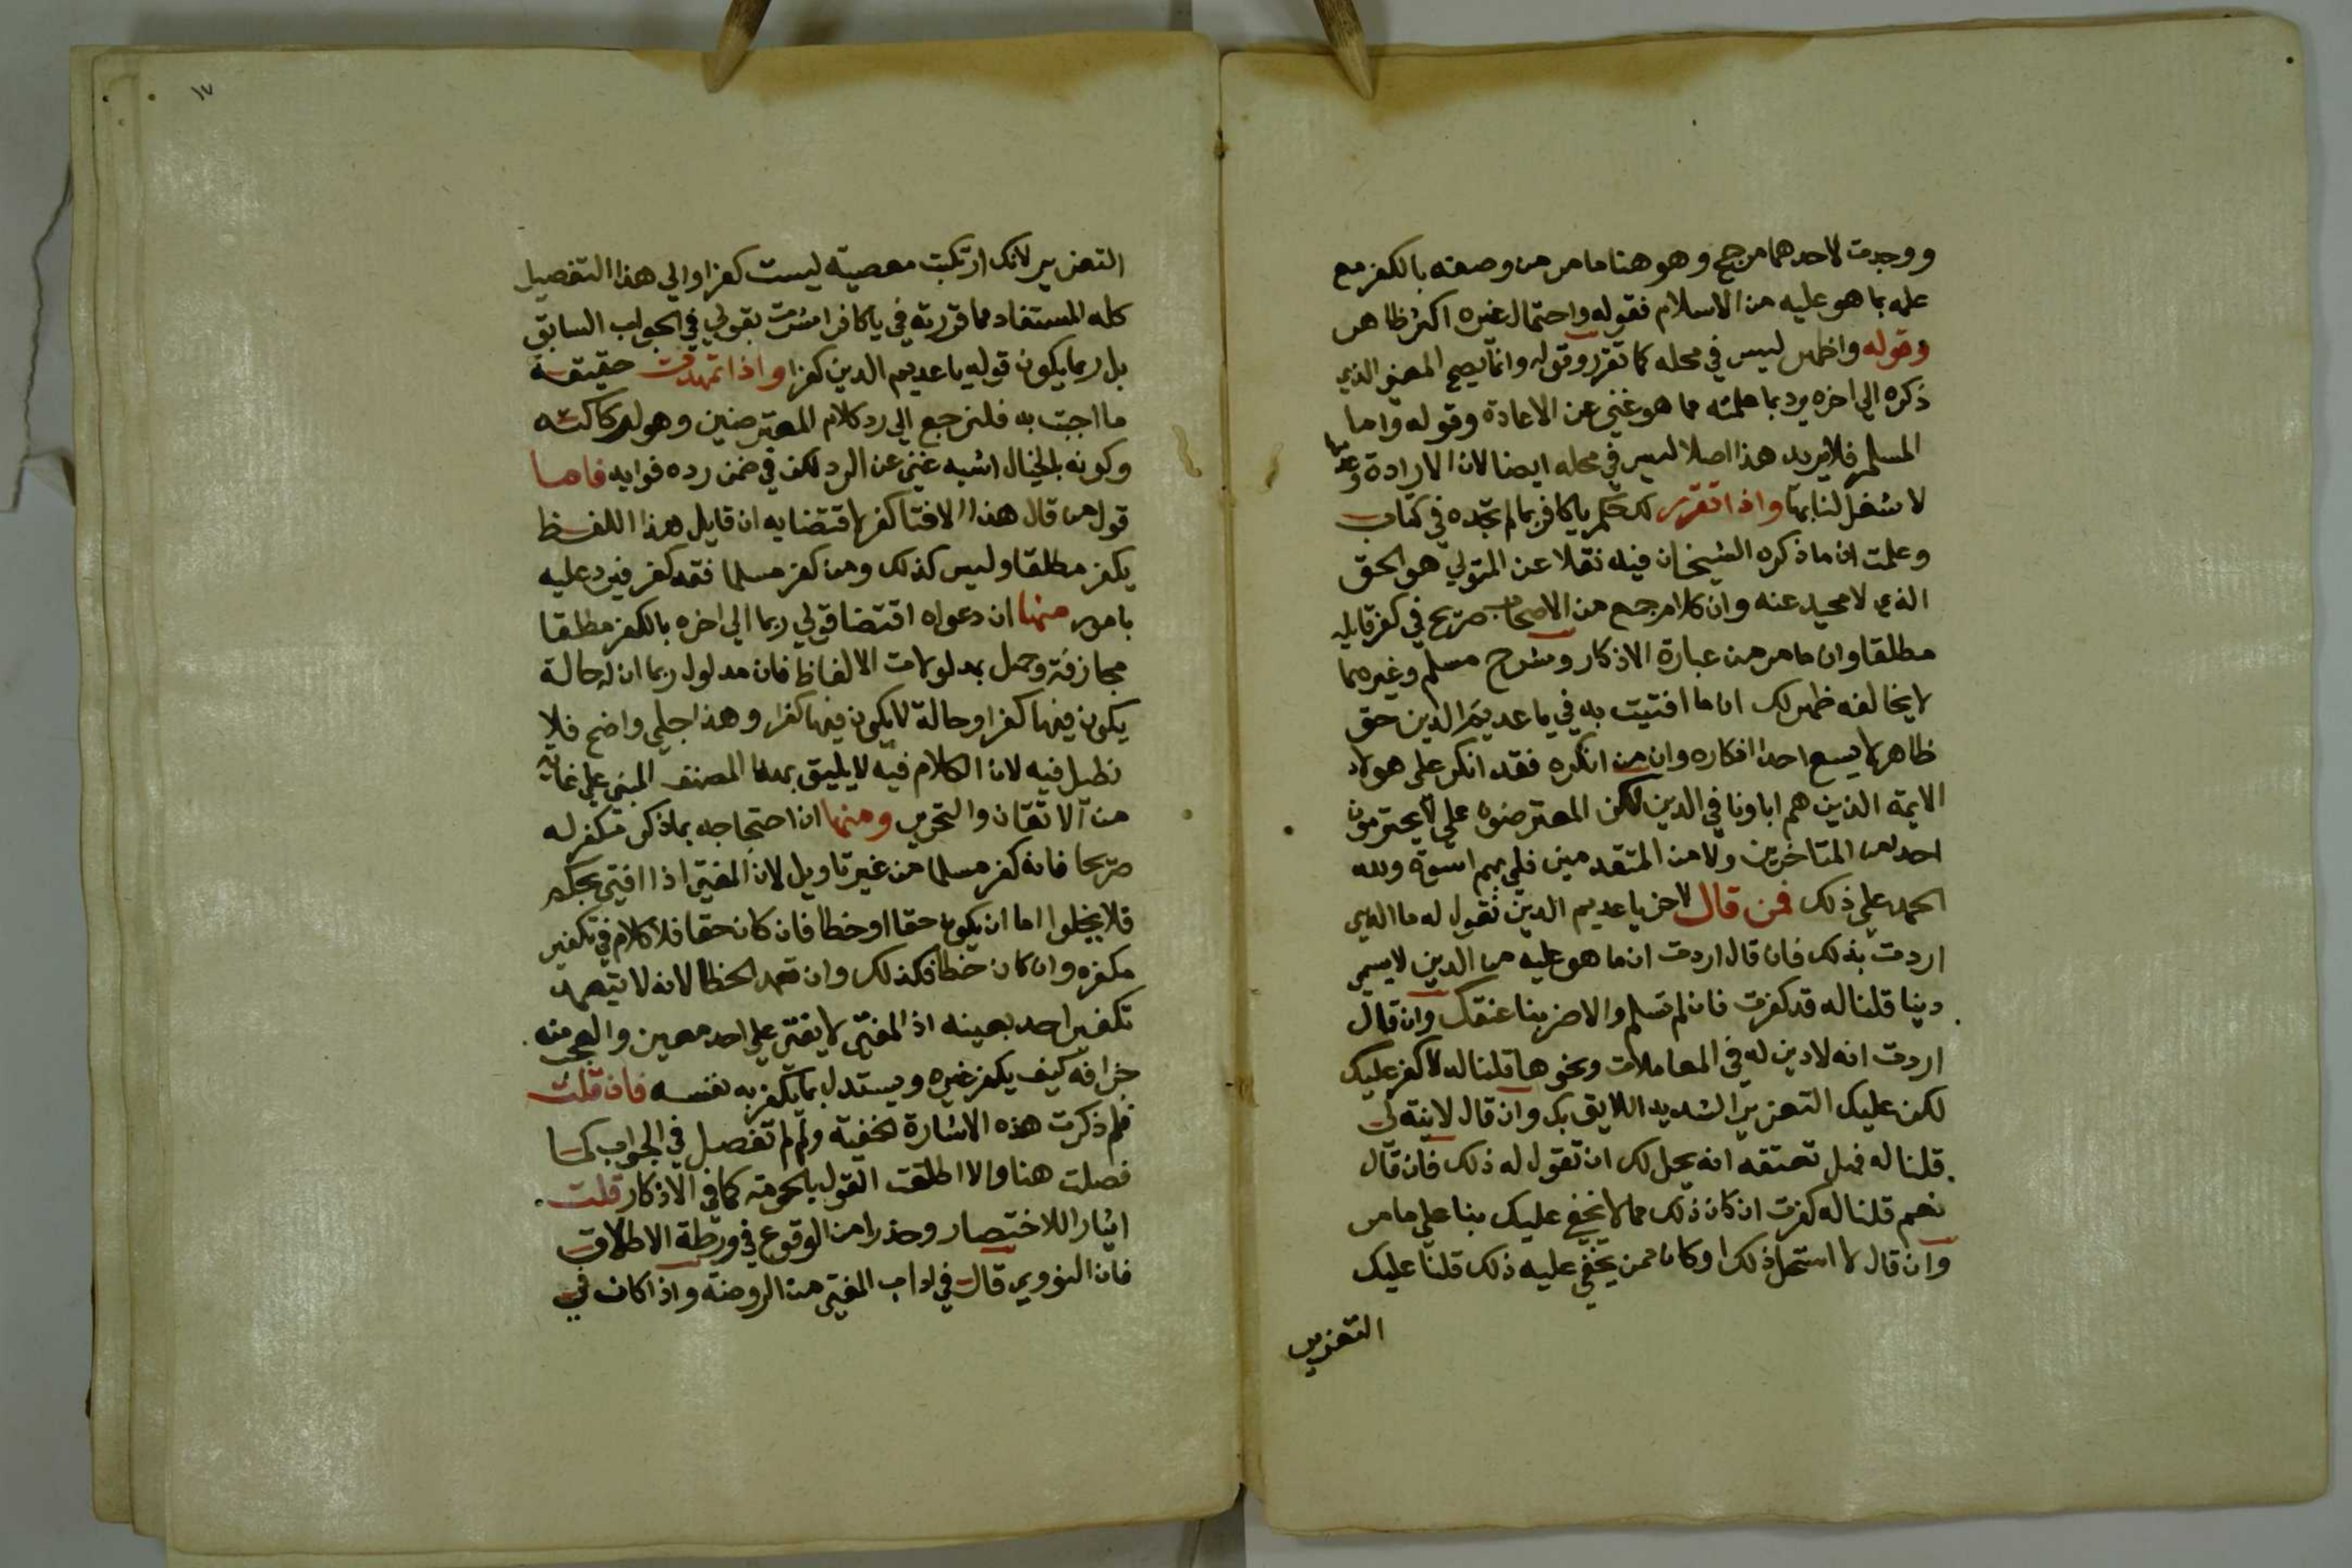 ووجدت لاحدهما مرجح وهو هنا ما مر من وصفه بالكفر مع
علمه بما هو عليه من الاسلام فقوله واحتمال غيره اكثر ظاهر
وقوله واظهر ليس في محله كما تقرر وقوله وانما يصح المعنى الذي
ذكره الي اخره يرد بما علمته مما هو غني عن الاعادة وقوله واما
المسلم فلا يريد هذا اصلا ليس في محله ايضا لان الارادة وعدمها
لا شغل لنا بها واذا تقرر لك حكم يا كافر بما لم تجده في كتاب
وعلمت ان ما ذكره الشيخان فيه نقلا عن المتولي هو الحق
الذي لا محيد عنه وان كلام جمع من الاصحاب صريح في كفر قايله
مطلقا وان ما مر من عبارة الاذكار وشرح مسلم وغيرهما
لا يخالفه ظهر لك ان ما افتيت به في يا عديم الدين حق
ظاهر لا يسع احدا انكاره وان من انكره فقد انكر على هولاء
الايمة الذين هم اباونا في الدين لكن المعترضون علي لا يحترمون
احد من المتاخرين ولا من المتقدمين فلي بهم اسوة ولله
الحمد علي ذلك فمن قال لاخر يا عديم الدين نقول له ما الذي
اردت بذلك فان قال اردت ان ما هو عليه من الدين لا يسمي
دينا قلنا له قد كفرت فان لم تسلم والا ضربنا عنقك وان قال
اردت انه لا دين له في المعاملات ونحوها قلنا له لا كفر عليك
لكن عليك التعزير الشديد اللايق بك وان قال لا نية لي
قلنا له فهل تعتقد انه يحل لك ان تقول له ذلك فان قال
نعم قلنا له كفرت ان كان ذلك مما لا يخفي عليك بنا علي ما مر
وان قال لا استحل ذلك او كان ممن يخفي عليه ذلك قلنا عليك
التعزير
١٧
التعزير لانك ارتكبت معصية ليست كفرا والي هذا التفصيل
كله المستفاد مما قررته في يا كافر اشرت بقولي في الجواب السابق
بل ربما يكون قوله يا عديم الدين كفرا واذا تمهدت حقيقة
ما اجبت به فلنرجع الي رد كلام المعترضين وهو لركاكته
وكونه بالخيال اشبه غني عن الرد لكن في ضمن رده فوايد فاما
قول من قال هذا الافتا كفر لاقتضايه ان قايل هذا اللفظ
يكفر مطلقا وليس كذلك ومن كفر مسلما فقد كفر فيرد عليه
بامور منها ان دعواه اقتضا قولي ربما الي اخره بالكفر مطلقا
مجازفة وجهل بمدلولات الالفاظ فان مدلول ربما ان له حالة
يكون فيها كفرا وحالة لا يكون فيها كفرا وهذا جلي واضح فلا
نطيل فيه لان الكلام فيه لا يليق بهذا المصنف المبني علي غاية
من الاتقان والتحرير ومنها ان احتجاجه بما ذكر مكفر له
صريحا فانه كفر مسلما من غير تاويل لان المفتي اذا افتي بحكم
فلا يخلوا اما ان يكون حقا او خطا فان كان حقا فلا كلام في تكفير
مكفره وان كان خطا فكذلك وان تعمد الخطا لانه لا يتعمد
تكفير احد بعينه اذ المفتي لا يفتي علي احد معين والعجب منه
خرافة كيف يكفر غيره ويستدل بما يكفر به نفسه فان قلت
فلم ذكرت هذه الاشارة الخفية ولم لم تفصل في الجواب كما
فصلت هنا والا اطلقت القول بالحرمة كما في الاذكار قلت
ايثارا للاختصار وحذرا من الوقوع في ورطة الاطلاق
فان النووي قال في اداب المفتي من الروضة واذا كان في